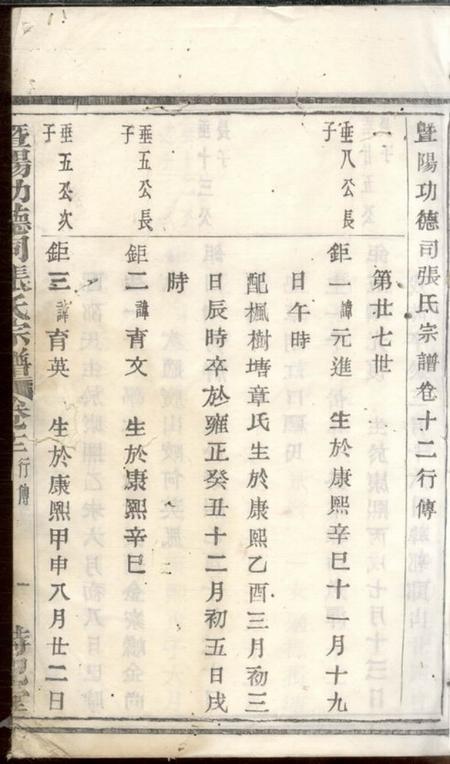 暨陽功德司張氏宗譜卷十二行傳
一
第廿七世
垂八公長子
鉅一諱元進 生於康熙辛巳十一月十九
日午時
配楓樹塘章氏生於康熙乙酉三月初三
日辰時卒於雍正癸丑十二月初五日戌
時
垂五公長子
鉅二諱育文 生於康熙辛巳
垂五公次子
鉅三諱育英 生於康熙甲申八月廿二日
暨陽功德司張氏宗譜 卷十二 行傳 一